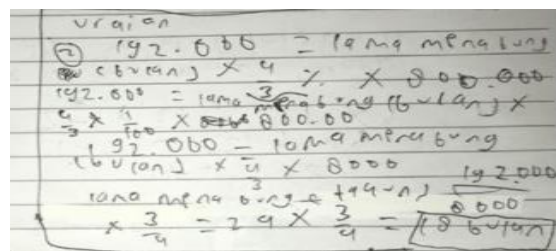 uraian
② 192.000 = lama menabung
(bulan) × 4/3 % × 800.000
192.000 = lama menabung (bulan) ×
4/3 × 1/100 × 800.00
192.000 = lama menabung
(bulan) × 4/3 × 8000
lama menabung 192.000/8000
× 3/4 = 24 × 3/4 = 18 bulan